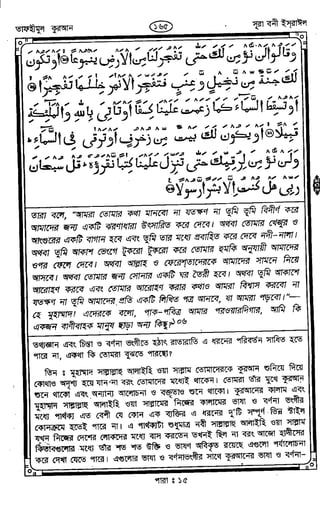 তাফহীমুল কুরআন
১৬৫
সূরা বনী ইসরাঈল
وَقَالُوا لَنْ نُّؤْمِنَ لَكَ حَتّٰى تَفْجُرَ لَنَا مِنَ الْاَرْضِ يَنْۢبُوْعًا ۝ اَوْ تَكُوْنَ
لَكَ جَنَّةٌ مِّنْ نَّخِيْلٍ وَّعِنَبٍ فَتُفَجِّرَ الْاَنْهٰرَ خِلٰلَهَا تَفْجِيْرًا ۝
اَوْ تُسْقِطَ السَّمَآءَ كَمَا زَعَمْتَ عَلَيْنَا كِسَفًا اَوْ تَاْتِيَ بِاللّٰهِ وَالْمَلٰٓئِكَةِ
قَبِيْلًا ۝ اَوْ يَكُوْنَ لَكَ بَيْتٌ مِّنْ زُخْرُفٍ اَوْ تَرْقٰى فِى السَّمَآءِ
وَلَنْ نُّؤْمِنَ لِرُقِيِّكَ حَتّٰى تُنَزِّلَ عَلَيْنَا كِتٰبًا نَّقْرَؤُهٗ قُلْ سُبْحَانَ
رَبِّيْ هَلْ كُنْتُ اِلَّا بَشَرًا رَّسُوْلًا ۝
তারা বলে, "আমরা তোমার কথা মানবো না যতক্ষণ না তুমি ভূমি বিদীর্ণ করে
আমাদের জন্য একটি ঝরণাধারা উৎসারিত করে দেবে। অথবা তোমার খেজুর ও
আংগুরের একটি বাগান হবে এবং তুমি তার মধ্যে প্রবাহিত করে দেবে নদী-নালা।
অথবা তুমি আকাশ ভেংগে টুকরো টুকরো করে তোমার হুমকি অনুযায়ী আমাদের
ওপর ফেলে দেবে। অথবা আল্লাহ ও ফেরেশতাদেরকে আমাদের সামনে নিয়ে
আসবে। অথবা তোমার জন্য সোনার একটি ঘর তৈরী হবে। অথবা তুমি আকাশে
আরোহণ করবে এবং তোমার আরোহণ করার কথাও আমরা বিশ্বাস করবো না
যতক্ষণ না তুমি আমাদের প্রতি একটি লিখিত পত্র আনবে, যা আমরা পড়বো।"—
হে মুহাম্মাদ! এদেরকে বলো, পাক-পবিত্র আমার পরওয়ারদিগার, আমি কি
একজন বাণীবাহক মানুষ ছাড়া অন্য কিছু?১০৬
তত্ত্বজ্ঞান এবং চিন্তা ও বর্ণনা ভংগীতে হঠাৎ রাতারাতি এ ধরনের পরিবর্তন সাধিত হতে
পারে না, একথা কি তোমরা বুঝতে পারছো?
তিন : মুহাম্মাদ সাল্লাল্লাহু আলাইহি ওয়া সাল্লাম তোমাদেরকে কুরআন শুনিয়ে দিয়ে
কোথাও অদৃশ্য হয়ে যান না বরং তোমাদের মধ্যেই থাকেন। তোমরা তাঁর মুখে কুরআন
শুনে থাকো এবং অন্যান্য আলোচনা ও বক্তৃতাও শুনে থাকো। কুরআনের কালাম এবং
মুহাম্মাদ সাল্লাল্লাহু আলাইহি ওয়া সাল্লামের নিজের কালামের ভাষা ও বর্ণনা ভংগীর
মধ্যে পার্থক্য এত বেশী যে কোন এক ব্যক্তির এ ধরনের দু'টি সম্পূর্ণ ভিন্ন স্টাইল
কোনক্রমে হতেই পারে না। এ পার্থক্যটা শুধুমাত্র নবী সাল্লাল্লাহু আলাইহি ওয়া সাল্লাম
যখন নিজের দেশের লোকদের মধ্যে বাস করতেন তখনই ছিল না বরং আজো হাদীসের
কিতাবগুলোর মধ্যে তাঁর শত শত উক্তি ও ভাষণ অবিকৃত রয়েছে এগুলো পর্যালোচনা
করে দেখা যেতে পারে। এগুলোর ভাষা ও বর্ণনাভংগীর সাথে কুরআনের ভাষা ও বর্ণনা-
পারা : ১৫